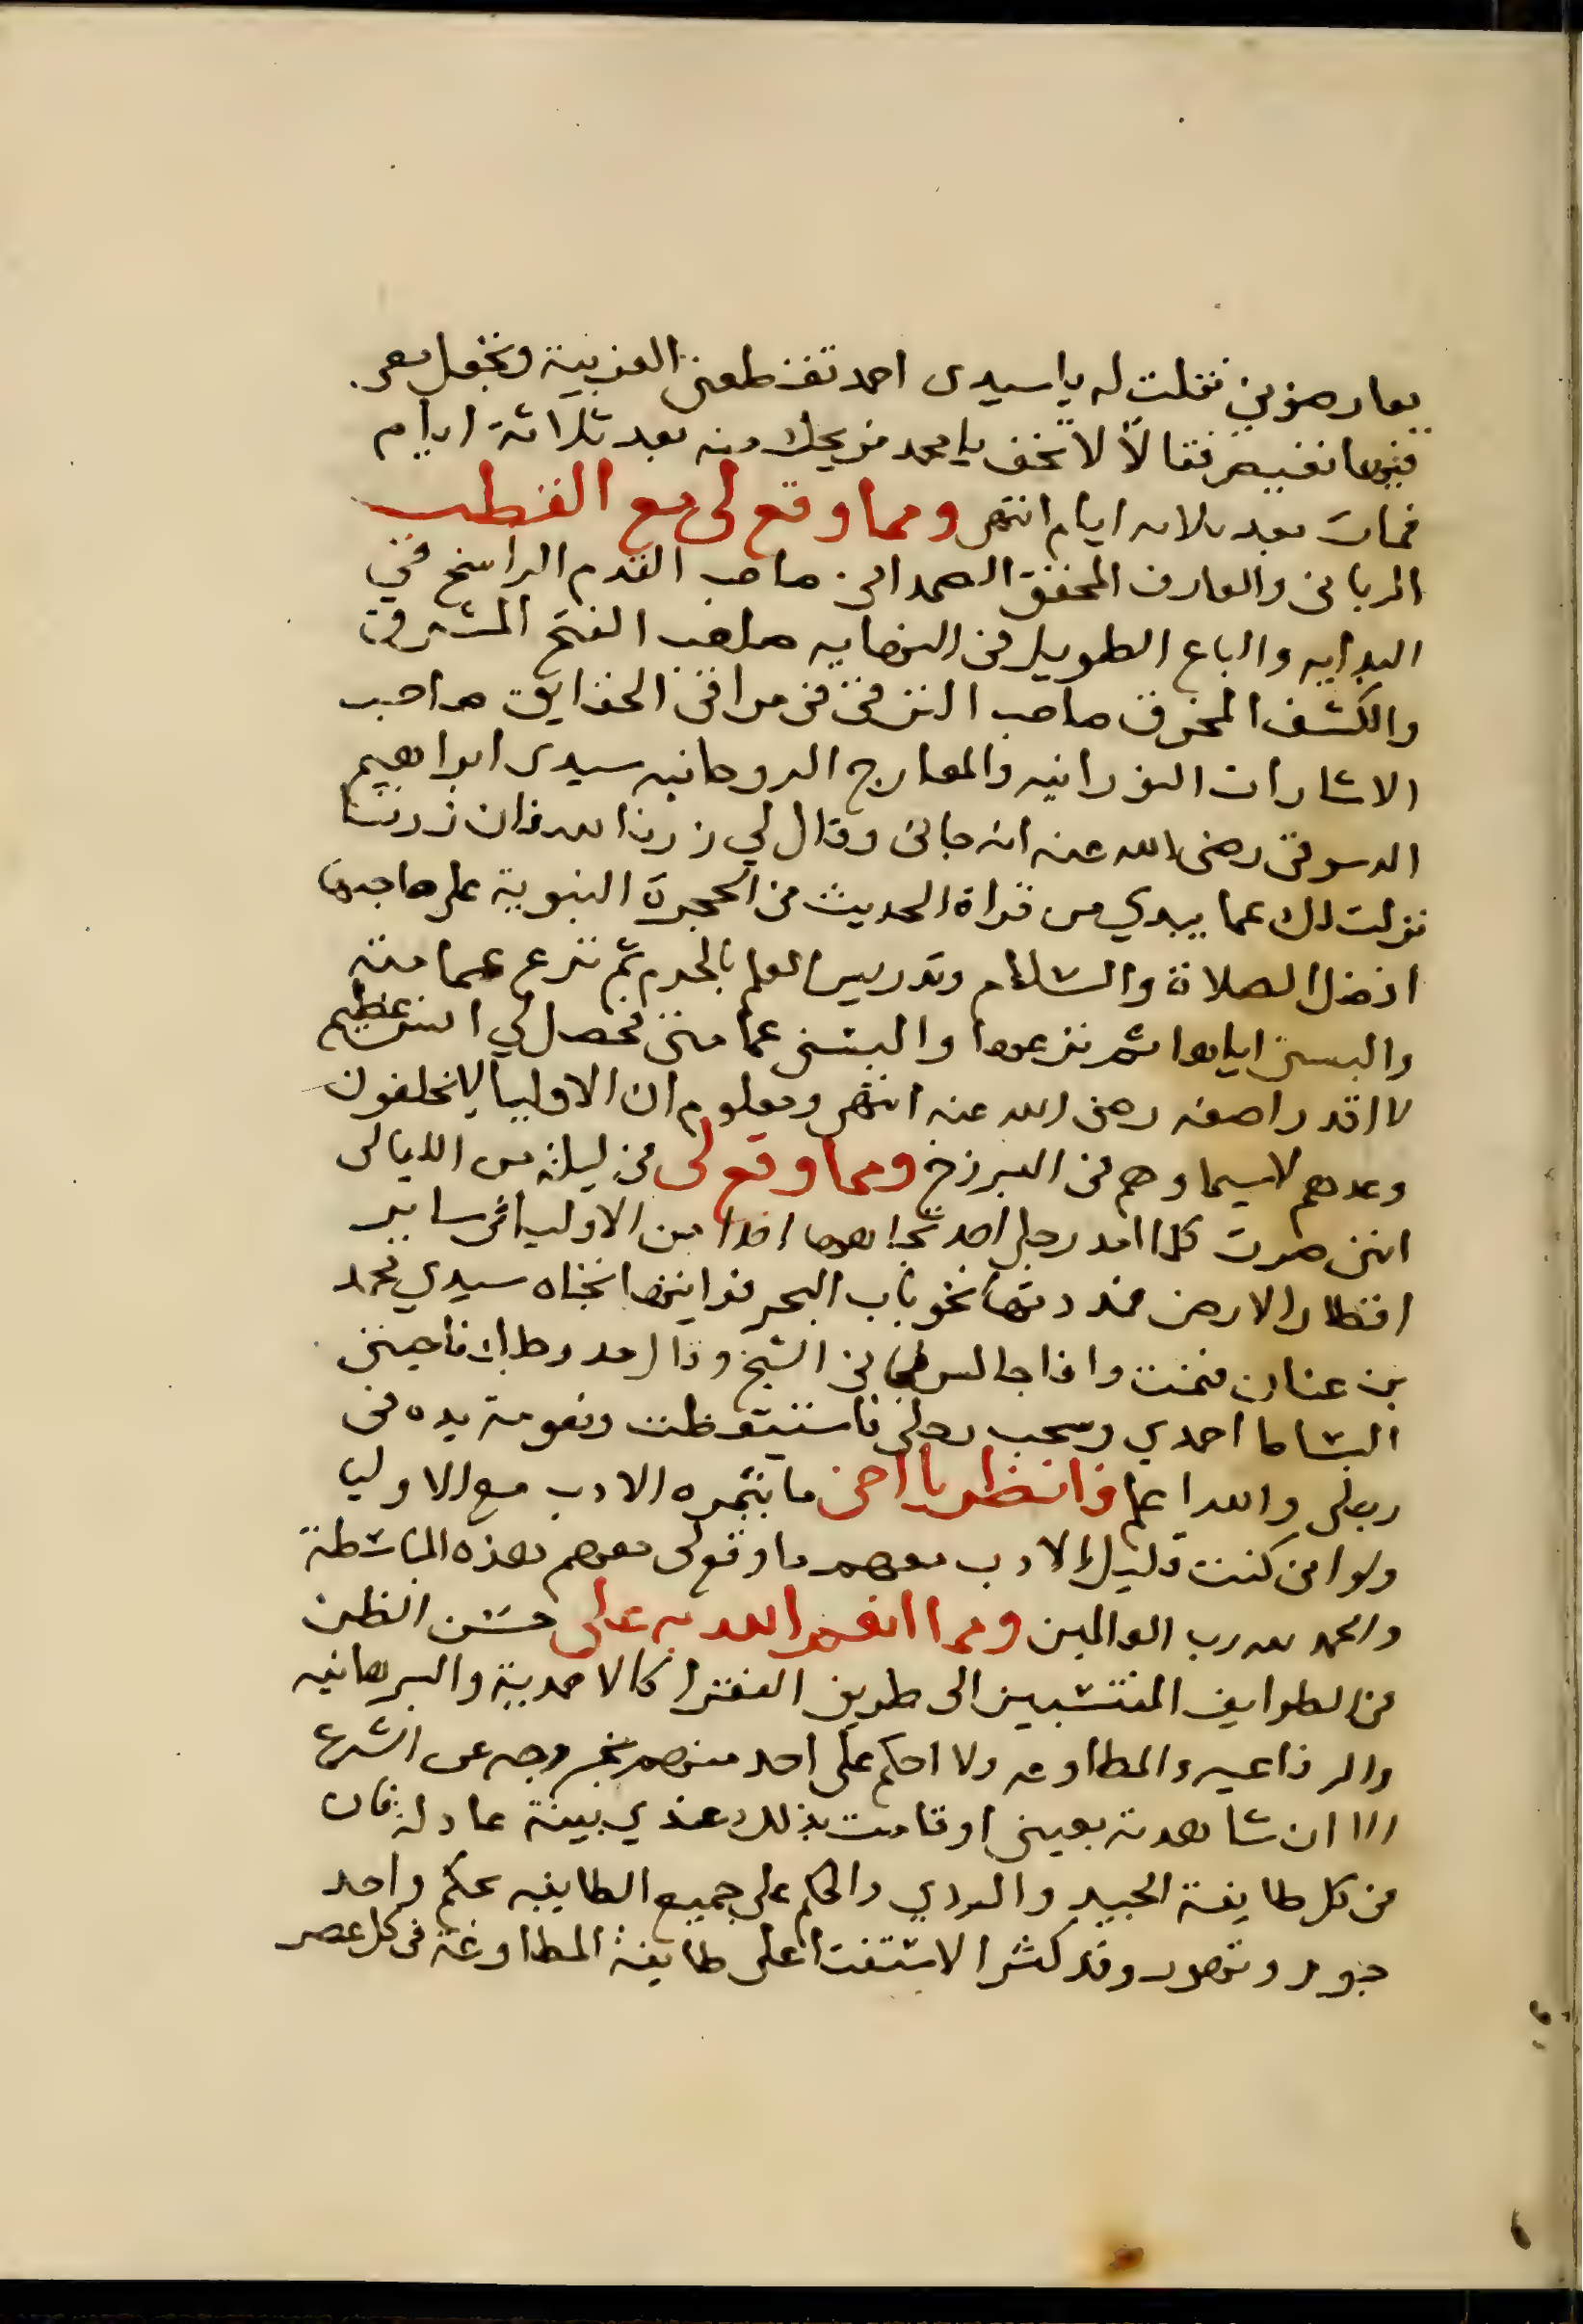 يعارضوني فقلت له يا سيدى احمد تقطعني الغربية وتجعل معي
فيها نفيضر فقالا لا تخف يا محمد نريحك منه بعد ثلاثة ايام
فمات بعد ثلاثه ايام انتهى ومما وقع لى مع القطب
الربانى والعارف المحقق الصمدانى صاحب القدم الراسخ في
البدايه والباع الطويل فى النهايه صاحب الفتح المشرق
والكشف المخرق صاحب الترقى فى مراقى الحقايق صاحب
الاشارات النورانيه والمعارج الروحانيه سيدى ابراهيم
الدسوقى رضى الله عنه انه جانى وقال لي زرنا لله فان زرتنا
نزلت لك عما بيدي من قراة الحديث فى الحجرة النبوية على صاحبها
افضل الصلاة والسلام وتدريس العلم بالحرم ثم نزع عمامته
والبسنى اياها ثم نزعها والبسنى عمامتى فحصل لي انس عظيم
لا اقدر اصفه رضى الله عنه انتهى ومعلوم ان الاوليا لا يخلفون
وعدهم لاسيما وهم فى البرزخ ومما وقع لى فى ليلة من الليالى
اننى صرت كلما امد رجلى اجد تجاهها احدا من الاوليا فى ساير
اقطار الارض فمددتها نحو باب البحر فرايتها تجاه سيدي محمد
بن عنان فنمت وانا جالس فجانى الشيخ وقال مد رجلك ناحيتى
البساط احمدي وسحب رجلى فاستيقظت ونعومة يده فى
رجلى والله اعلم فانظر يا اخى ما يثمره الادب مع الاوليا
ولو انى كنت قليل الادب معهم ما وقع لى معهم هذه المباسطة
والحمد لله رب العالمين ومما انعم الله به على حسن الظن
فى الطوايف المنتسبين الى طريق الفقرا كالاحمدية والبرهانيه
والرفاعيه والمطاوعه ولا احكم على احد منهم بخروجه عن الشرع
الا ان شاهدته بعينى او قامت بذلك عندي بينة عادلة فان
فى كل طايفة الجيد والردي والحكم على جميع الطايفه بحكم واحد
جور وتهور وقد كثر الاستفتا على طايفة المطاوعة فى كل عصر